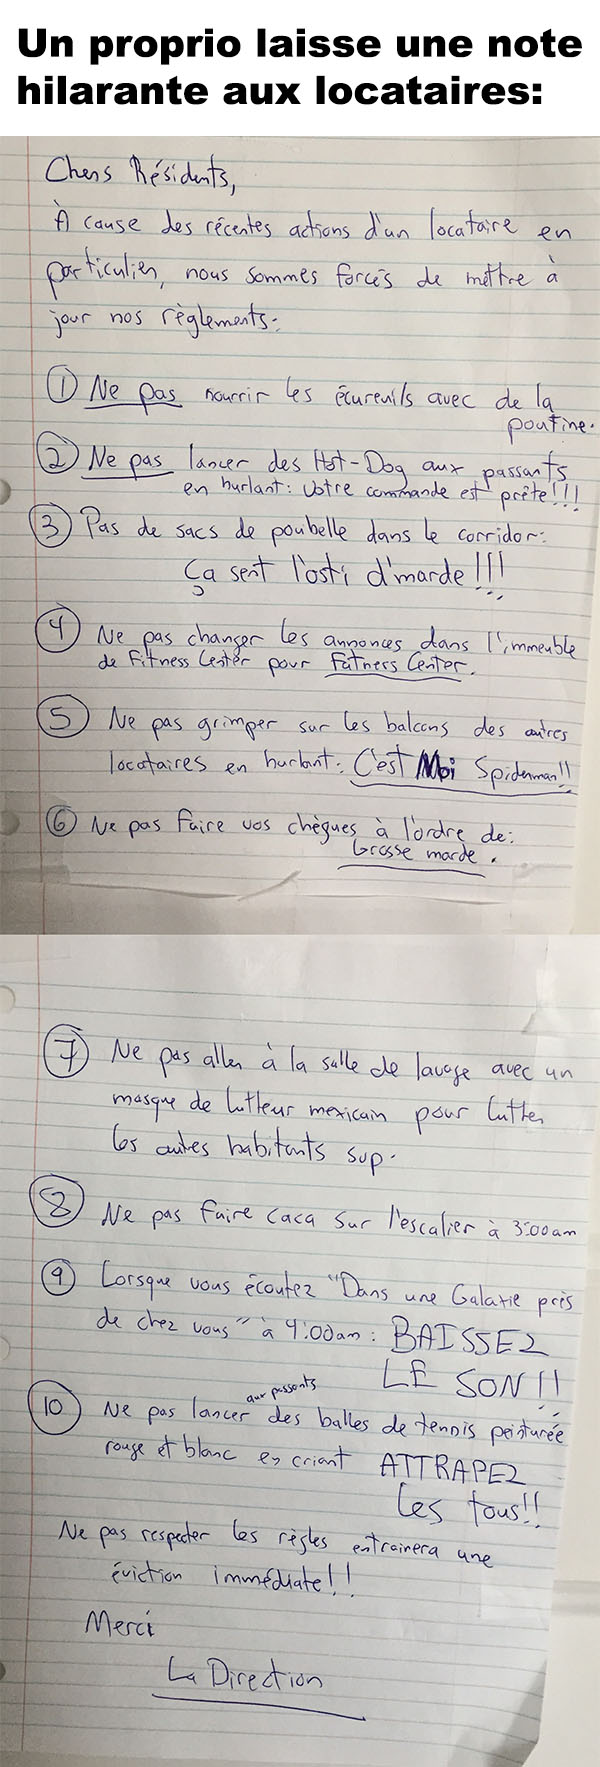 Un proprio laisse une note
hilarante aux locataires:
Chers Résidents,
À cause des récentes actions d'un locataire en
particulier, nous sommes forcés de mettre à
jour nos règlements:
① Ne pas nourrir les écureuils avec de la
poutine.
② Ne pas lancer des Hot-Dog aux passants
en hurlant: Votre commande est prête!!!
③ Pas de sacs de poubelle dans le corridor:
Ça sent l'osti d'marde!!!
④ Ne pas changer les annonces dans l'immeuble
de Fitness Center pour Fatness Center.
⑤ Ne pas grimper sur les balcons des autres
locataires en hurlant: C'est Moi Spiderman!!
⑥ Ne pas faire vos chèques à l'ordre de:
Grosse marde.
⑦ Ne pas aller à la salle de lavage avec un
masque de lutteur mexicain pour lutter
les autres habitants svp.
⑧ Ne pas faire caca sur l'escalier à 3:00am
⑨ Lorsque vous écoutez "Dans une Galaxie près
de chez vous" à 4:00am: BAISSEZ
LE SON!!
aux passants
⑩ Ne pas lancer des balles de tennis peinturée
rouge et blanc en criant ATTRAPEZ
Les tous!!
Ne pas respecter les règles entrainera une
éviction immédiate!!
Merci
La Direction